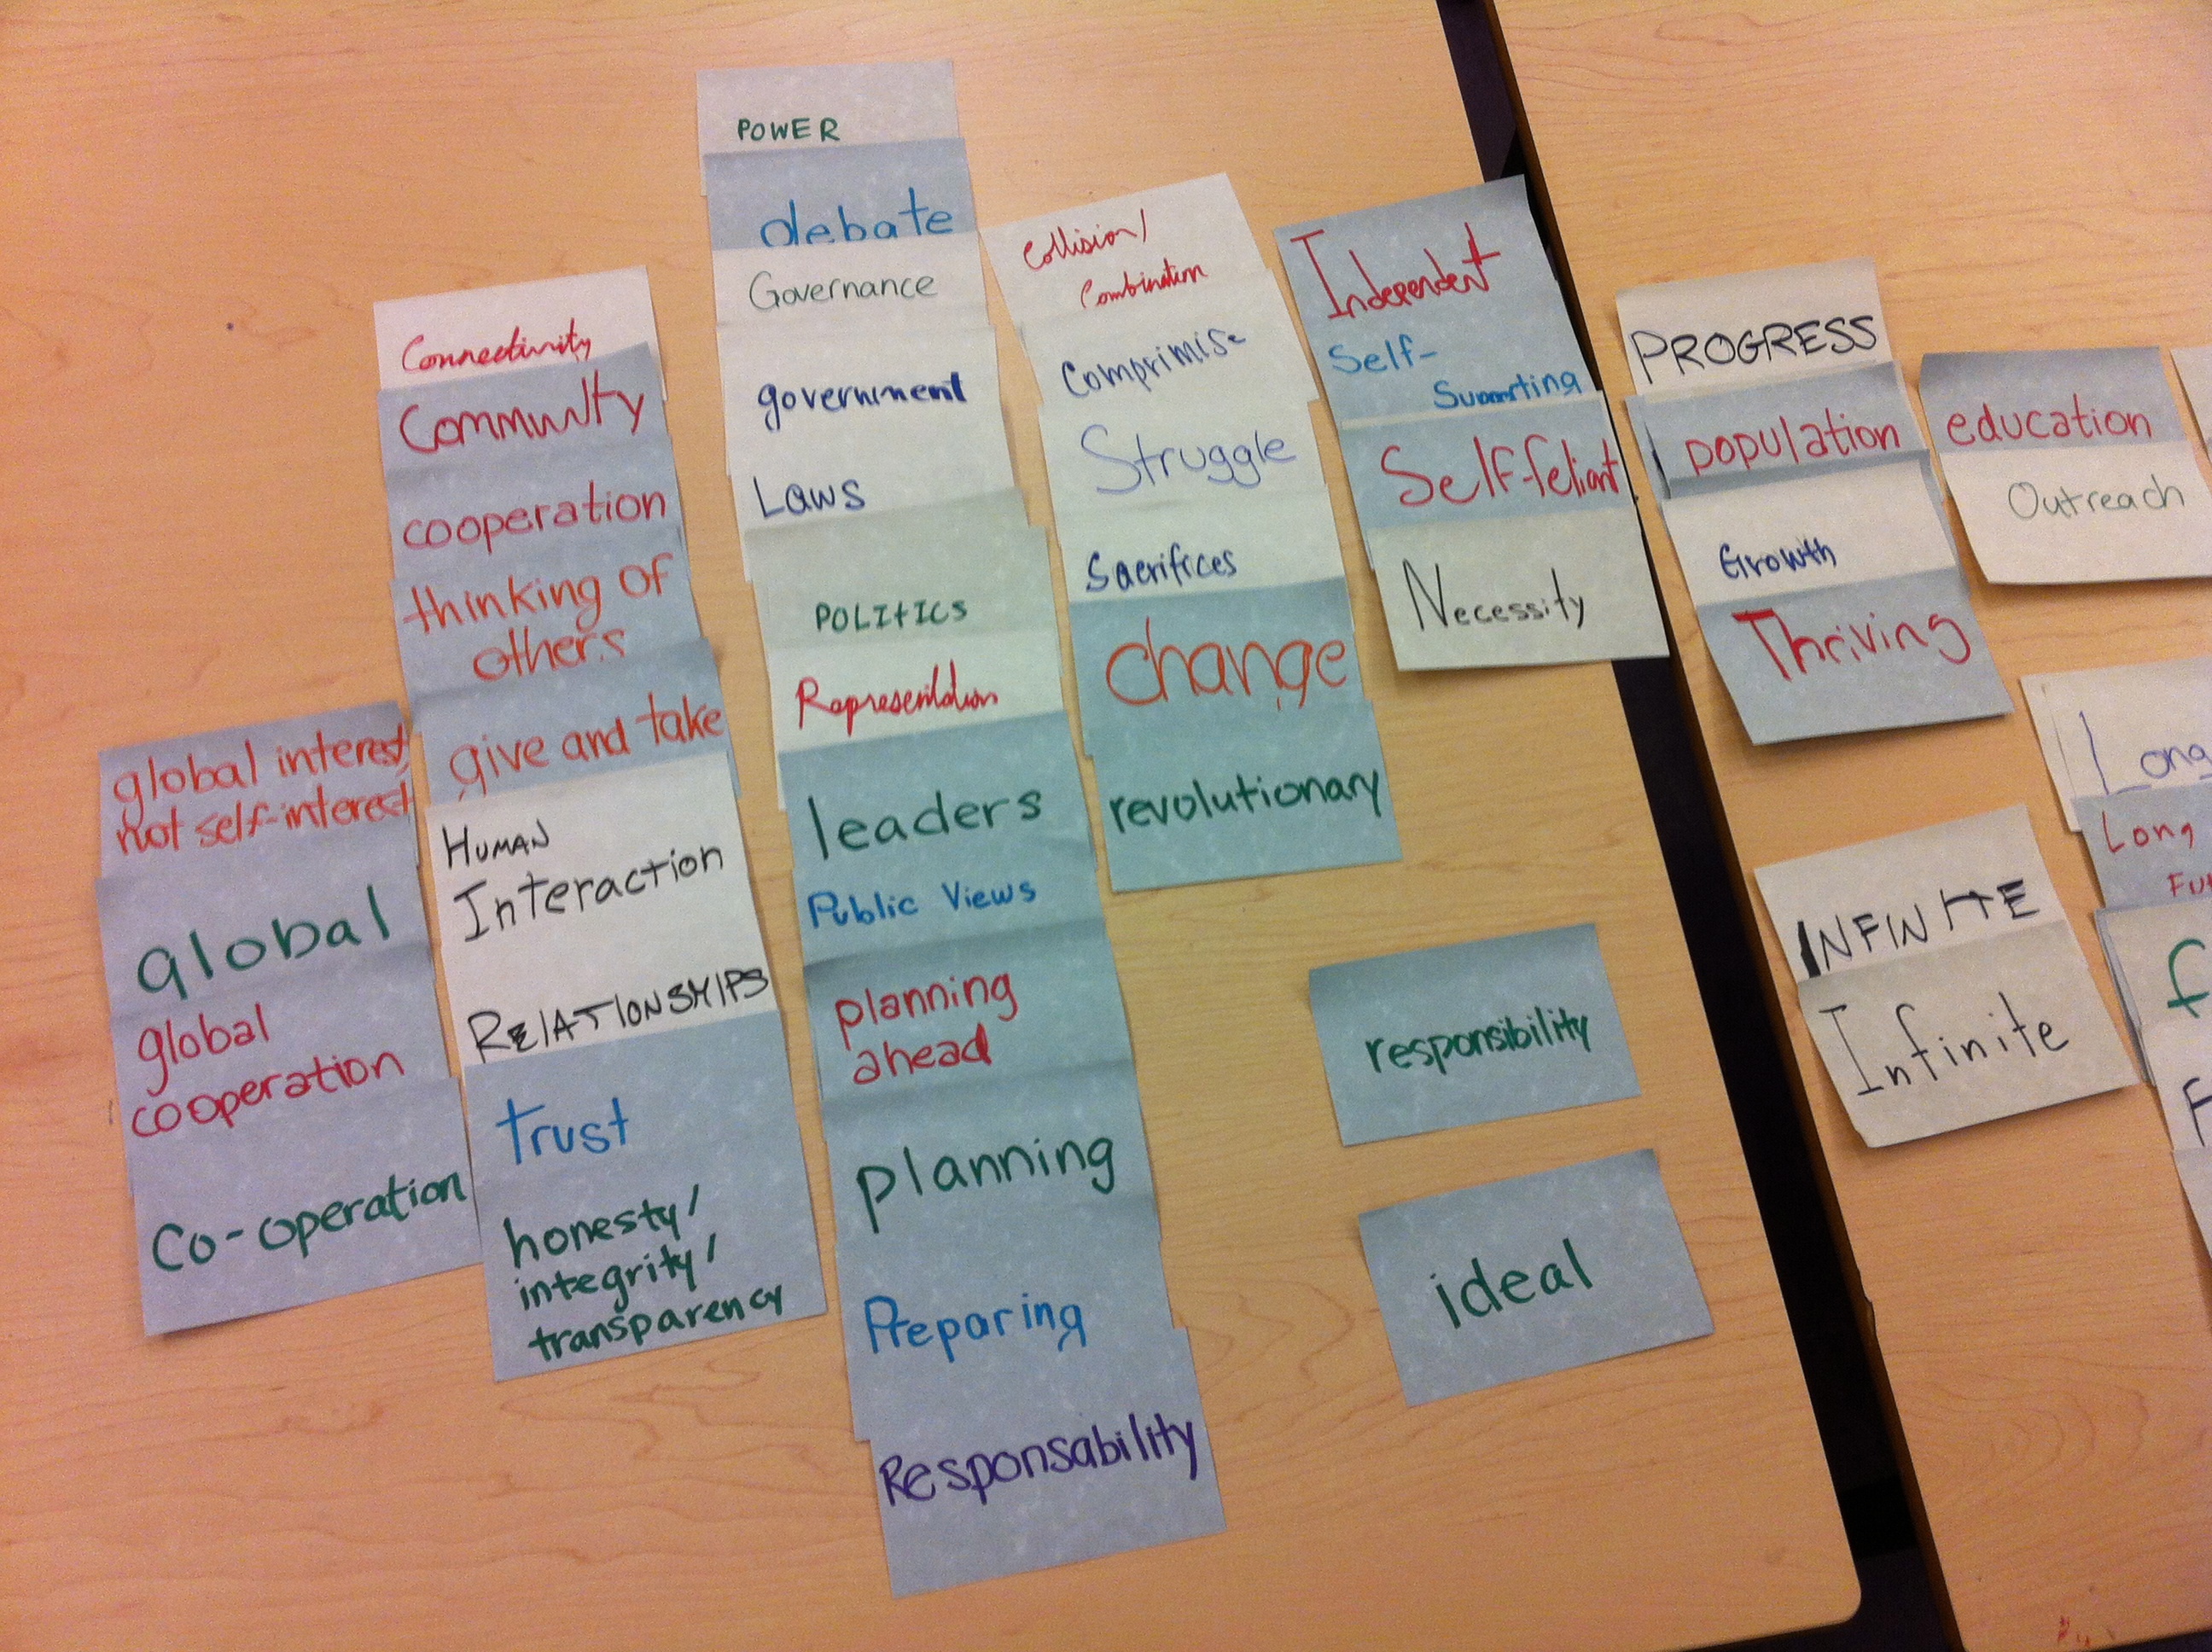 global interest,
not self-interest
global
global
cooperation
Co-operation
Connectivity
Community
cooperation
thinking of
others
give and take
HUMAN
Interaction
RELATIONSHIPS
trust
honesty/
integrity/
transparency
POWER
debate
Governance
government
LAWS
POLITICS
Representation
leaders
Public Views
planning
ahead
planning
Preparing
Responsability
Collision/
Combination
Comprimise
Struggle
Sacrifices
change
revolutionary
Independent
Self-
Supporting
Self-reliant
Necessity
responsibility
ideal
PROGRESS
population
Growth
Thriving
education
Outreach
INFINITE
Infinite
Long
Long